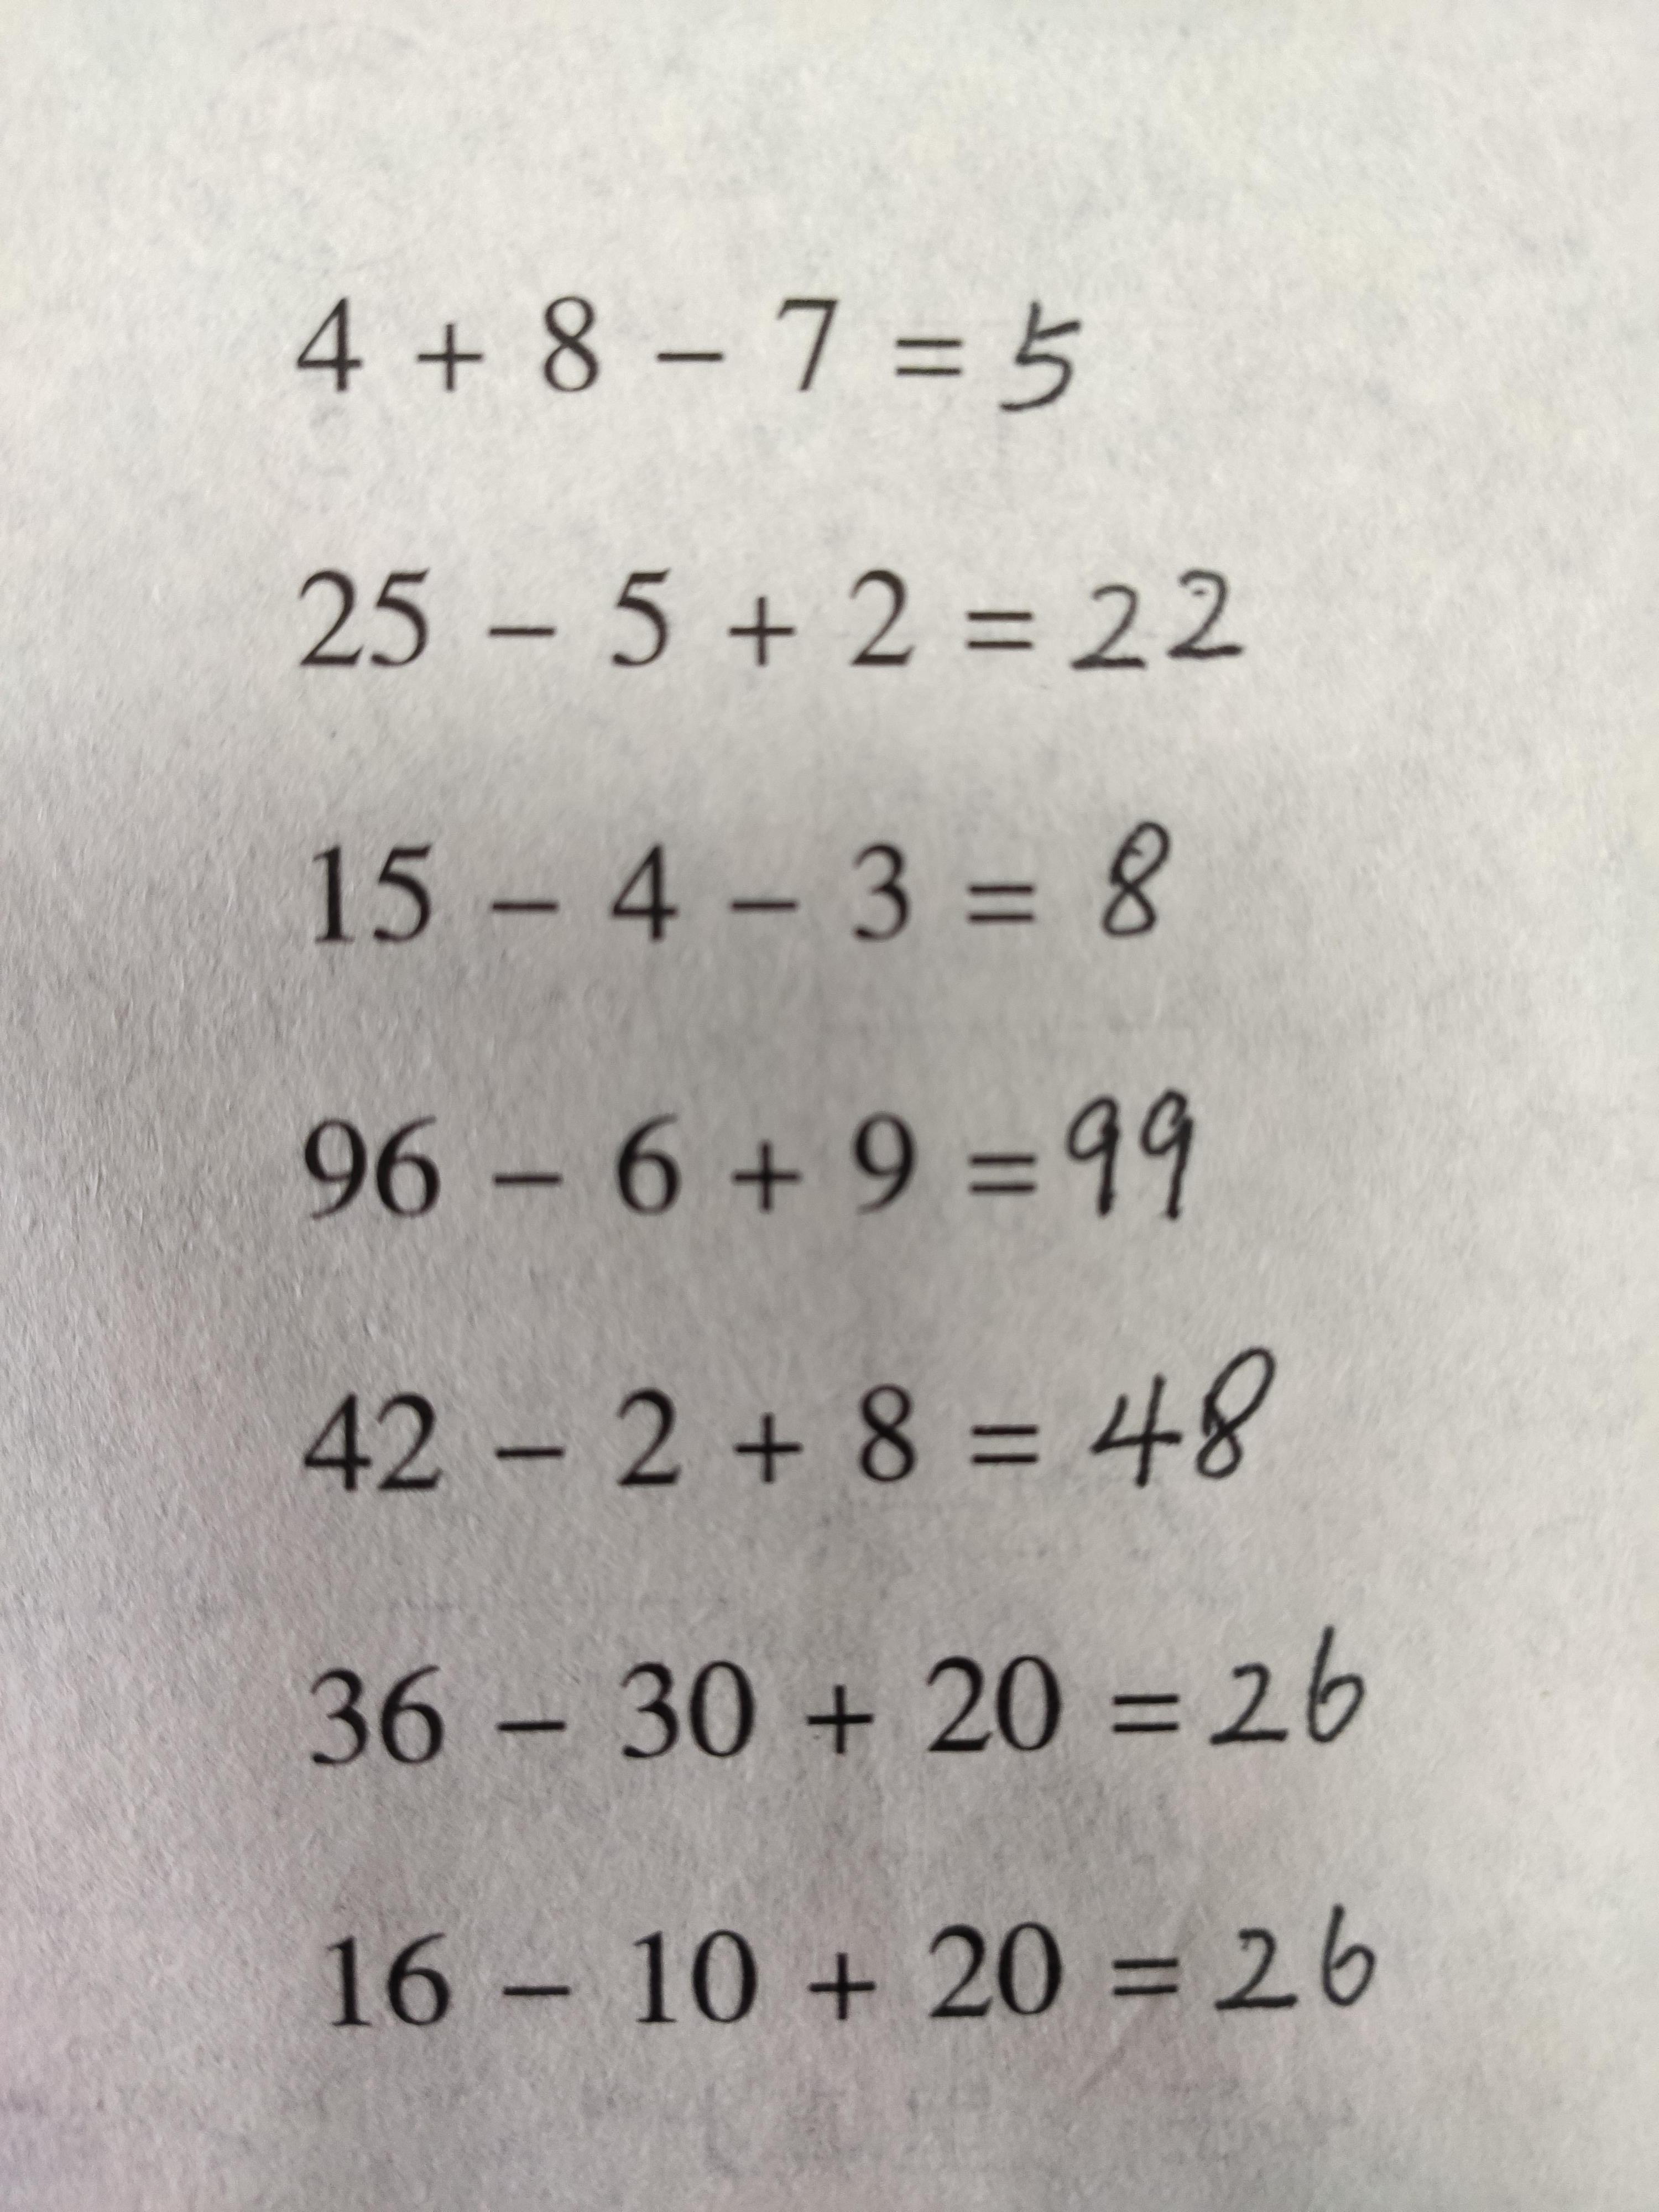 4 + 8 − 7 = 5
25 − 5 + 2 = 22
15 − 4 − 3 = 8
96 − 6 + 9 = 99
42 − 2 + 8 = 48
36 − 30 + 20 = 26
16 − 10 + 20 = 26